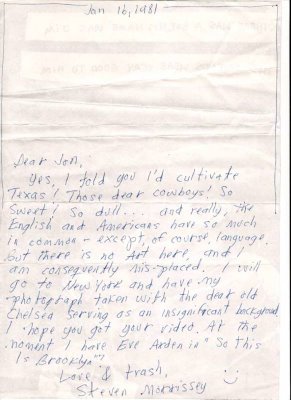 Jan 16, 1981
Dear Jon,
Yes, I told you I'd cultivate
Texas! Those dear cowboys! So
Sweet! So dull... and really, the
English and Americans have so much
in common - except, of course, language.
But there is no Art here, and I
am consequently mis-placed. I will
go to New York and have my
photograph taken with the dear old
Chelsea serving as an insignificant backgrond.
I hope you got your video. At the
moment I have Eve Arden in "So this
Is Brooklyn"!
Love & trash,
Steven Morrissey